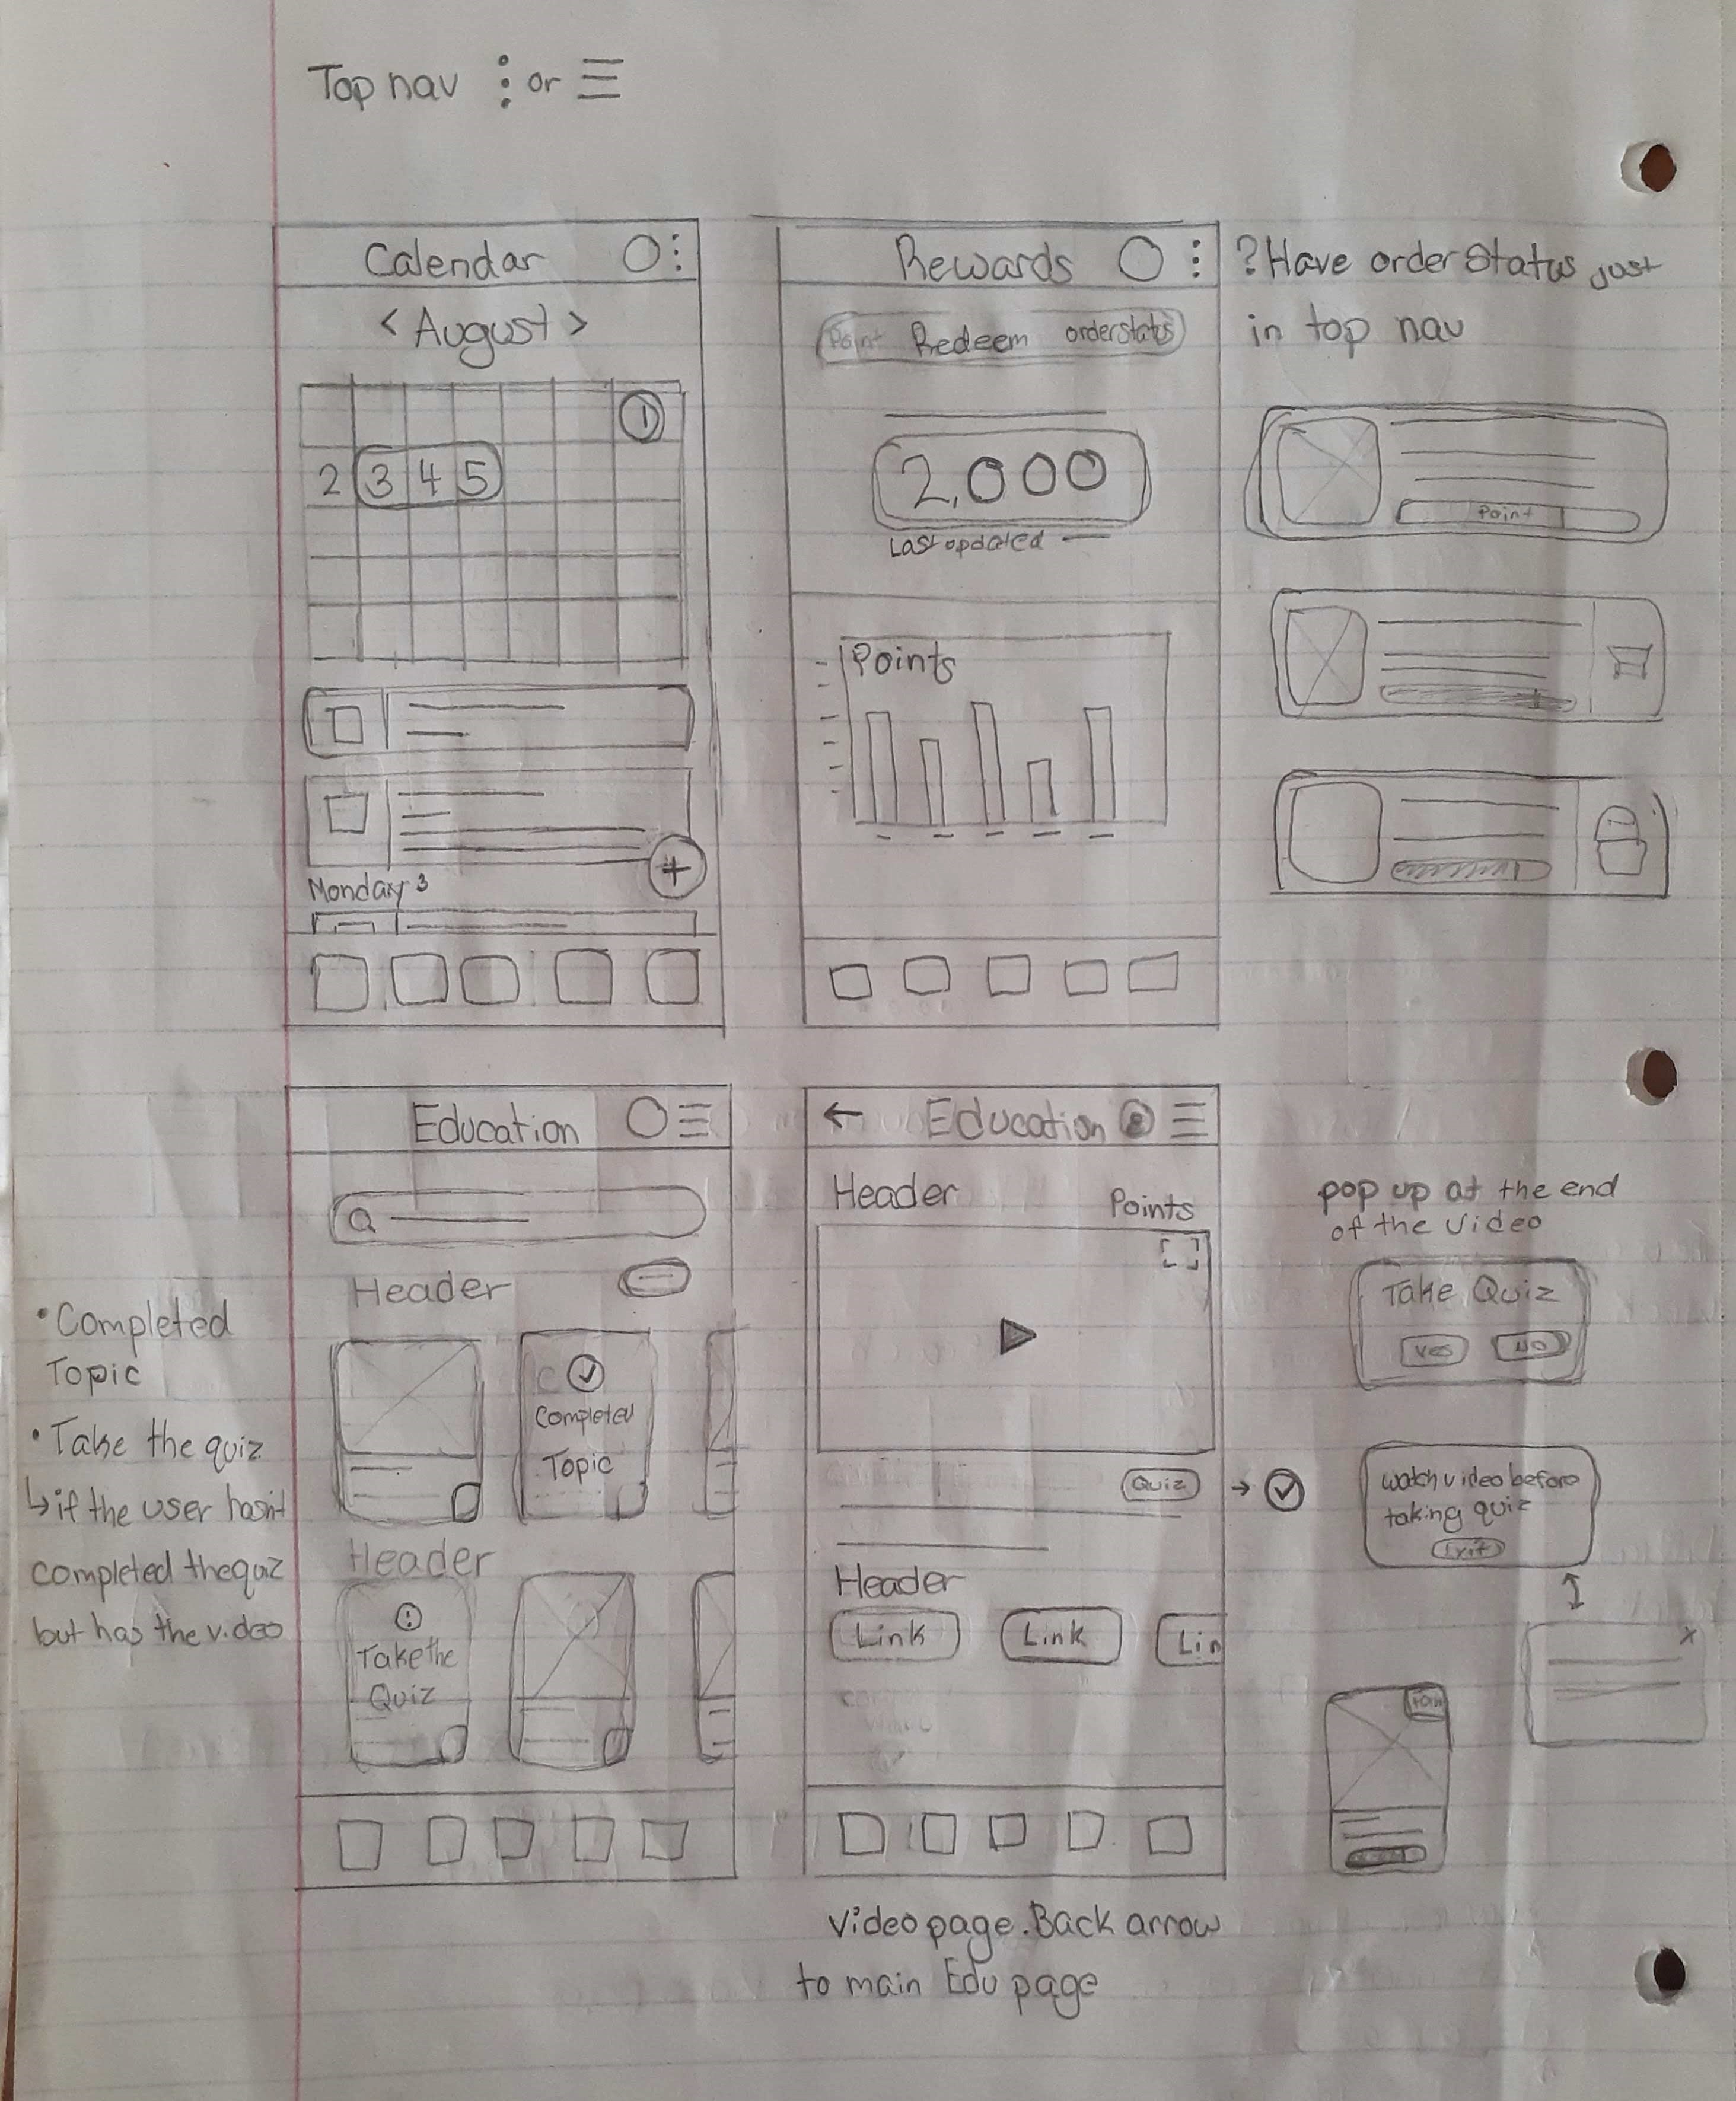 Top nav ⋮ or ☰
Calendar
< August >
1
2 3 4 5
Monday 3
Rewards
Point Redeem orderstatus
2,000
Last updated
Points
?Have order Status just
in top nav
Point
Education
Header
Completed
Topic
Header
Take the
Quiz
• Completed
Topic
• Take the quiz
↳ if the user hasn't
completed the quiz
but has the video
← Education
Header
Points
Quiz
Header
Link Link Lin
Video page. Back arrow
to main Edu page
pop up at the end
of the video
Take Quiz
Yes NO
watch video before
taking quiz
Exit